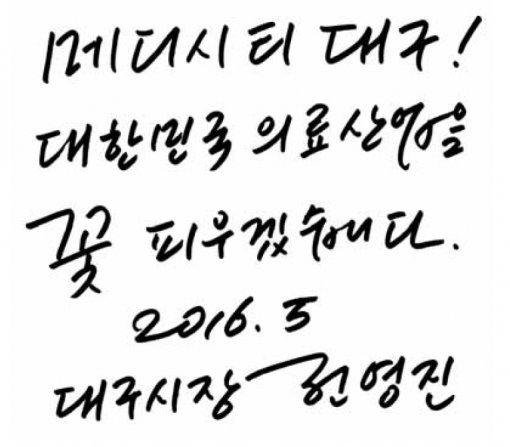 메디시티 대구!
대한민국 의료산업을
꽃 피우겠습니다.
2016. 5
대구시장 권영진